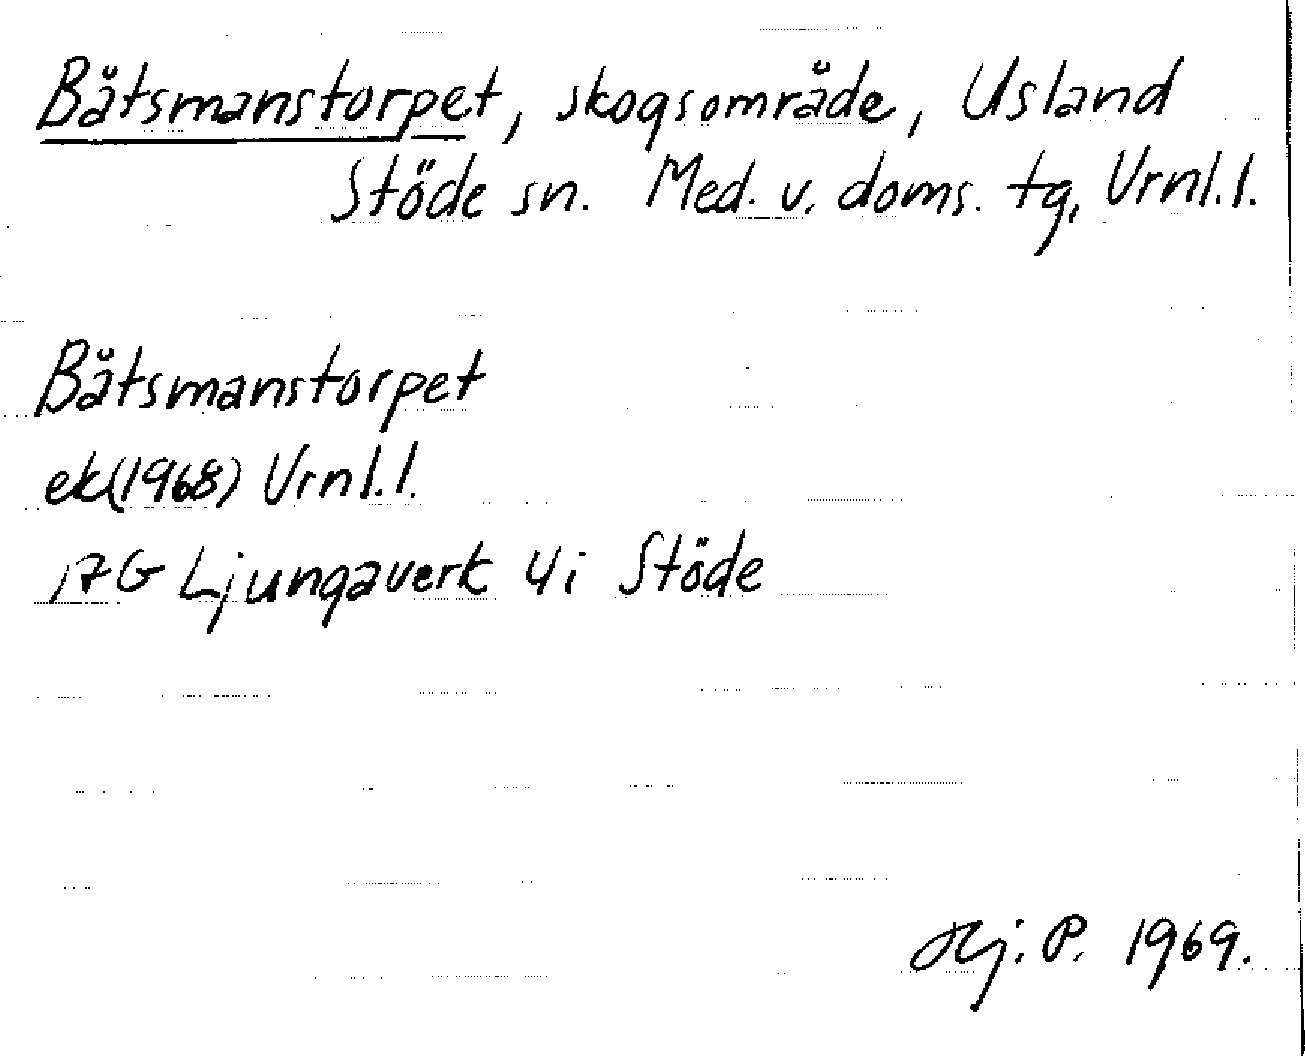 Båtsmanstorpet, skogsområde, Usland
Stöde sn. Med. v. doms. tg, Vrnl.l.
Båtsmanstorpet
ek(1968) Vrnl.l.
17G Ljungaverk 4i Stöde
Hj. P. 1969.